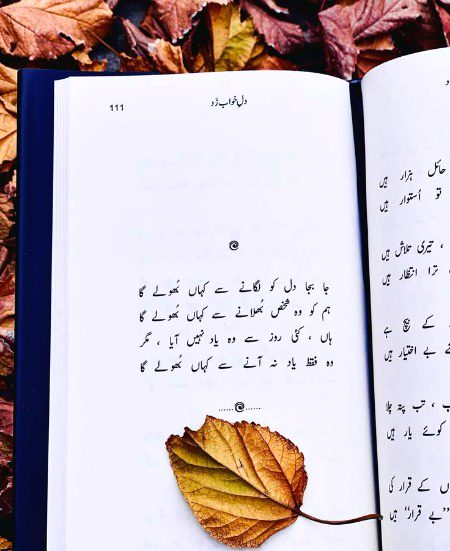 حائل ہزار ہیں
تو اُستوار ہیں
، تیری تلاش ہیں
ترا انتظار ہیں
کے بیچ ہے
بے اختیار ہیں
، تب پتہ چلا
کوئے یار ہیں
کے قرار کی
"بے قرار" ہیں
دلِ خواب زَد 111
جا بجا دل کو لگانے سے کہاں بُھولے گا
ہم کو وہ شخص بُھلانے سے کہاں بُھولے گا
ہاں ، کئی روز سے وہ یاد نہیں آیا ، مگر
وہ فقط یاد نہ آنے سے کہاں بُھولے گا